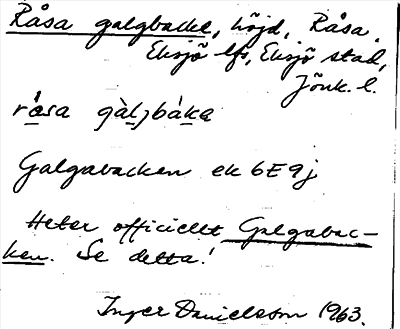 Råsa galgbacke, höjd, Råsa.
Eksjö lfs, Eksjö stad,
Jönk. l.
rǻsa gàljbáka
Galgabacken ek 6E9j
Heter officiellt Galgabac-
ken. Se detta!
Inger Danielsson 1963.